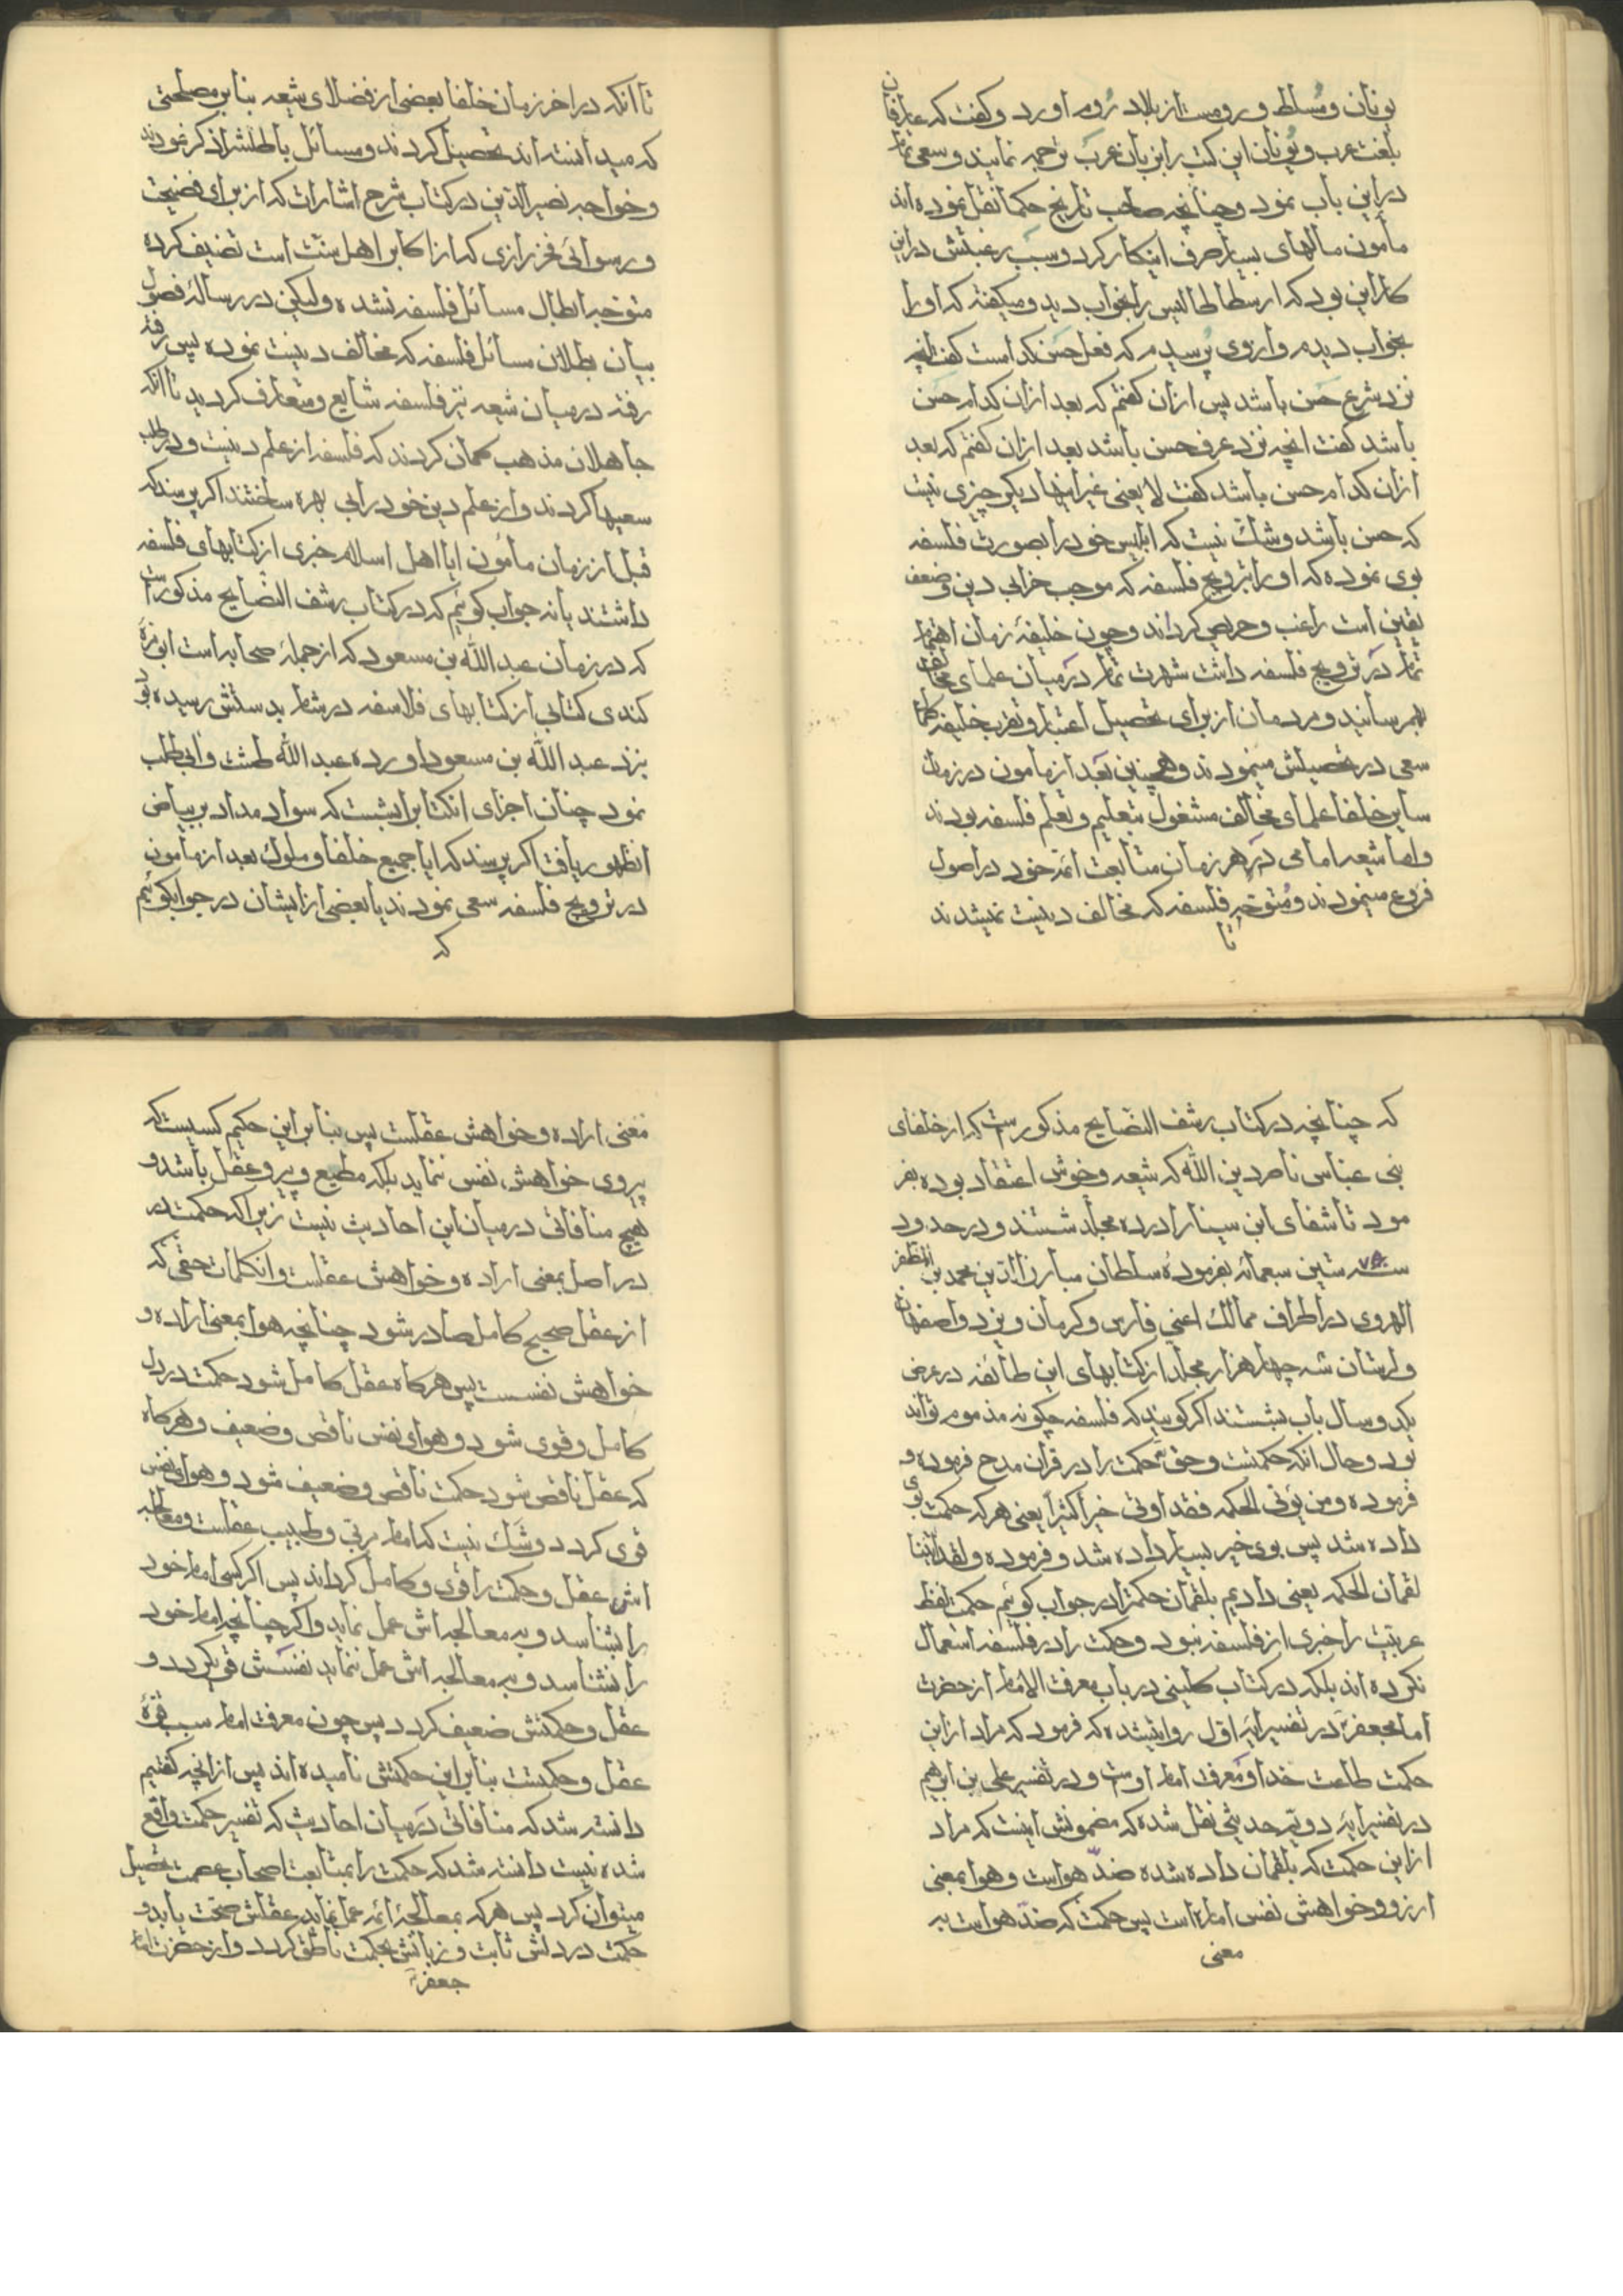 یونان و مسلط و روم است از بلاد روم اورد و کفت که عارفان
بلغت عرب و یونان این کتب را بزبان عرب ترجمه نمایند و سعی تمام
در این باب نمود و چنانچه صاحب تاریخ حکما نقل نموده اند
مأمون مالهای بسیار صرف اینکار کرد و سبب رغبتش در این
کار این بود که ارسطاطالیس را بخواب دید و میکفته که او را
بخواب دیدم و از وی پرسیدم که فعل حسن کدامست کفت انچه
نزد شرع حسن باشد پس از ان کفتم که بعد از ان کدام حسن
باشد کفت انچه نزد عرف حسن باشد بعد از ان کفتم که بعد
از ان کدام حسن باشد کفت لا یعنی غیر اینها دیکر چیزی نیست
که حسن باشد و شک نیست که ابلیس خود را بصورت فلسفه
بوی نموده که او را بترویج فلسفه که موجب خرابی دین و ضعف
یقین است راغب و حریص کرداند و چون خلیفهٔ زمان اهتمام
تمام در ترویج فلسفه داشت شهرت تمام در میان علمای مخالف
بهمرسانید و مردمان از برای تحصیل اعتبار و تقرب خلیفه کمال
سعی در تحصیلش مینمودند و همچنین بعد از مامون در زمان
سایر خلفا علمای مخالف مشغول بتعلیم و تعلم فلسفه بودند
و اما شیعه امامی در هر زمان متابعت ائمه خود در اصول
فروع مینمودند و متوجه فلسفه که مخالف دینست نمیشدند
تا
تا انکه در اخر زمان خلفا بعضی از فضلای شیعه بنابر مصلحتی
که میدانسته اند تحصیل کردند و مسائل باطلشرا ذکر نمودند
و خواجه نصیر الدین در کتاب شرح اشارات که از برای فضیحت
و رسوائی فخر رازی که از اکابر اهل سنت است تصنیف کرده
متوجه ابطال مسائل فلسفه نشده ولیکن در رسالهٔ فصول
بیان بطلان مسائل فلسفه که مخالف دینست نموده پس رفته
رفته در میان شیعه نیز فلسفه شایع و متعارف کردید تا انکه
جاهلان مذهب کمان کردند که فلسفه از علم دینست و در طلب
سعیها کردند و از علم دین خود را بی بهره ساختند اکر پرسند که
قبل از زمان مامون ایا اهل اسلام خبری از کتابهای فلسفه
داشتند یا نه جواب کوئیم که در کتاب رشف النصایح مذکور است
که در زمان عبد الله بن مسعود که از جملهٔ صحابه است ابو مره
کندی کتابی از کتابهای فلاسفه در شام بدستش رسیده بود
بنزد عبد الله بن مسعود اورده عبد الله طشت و ابی طلب
نمود چنان اجزای انکتاب را بشست که سواد مداد بر بیاض
انظهور یافت اکر پرسند که ایا جمیع خلفا و ملوک بعد از مامون
در ترویج فلسفه سعی نمودند یا بعضی از ایشان در جواب کوئیم
که
که چنانچه در کتاب رشف النصایح مذکور است که از خلفای
بنی عباس ناصر دین الله که شیعه و خوش اعتقاد بوده بفر
مود تا شفای ابن سینا را در ده مجلد شستند و در حدود
سنه ستین سبعمائه بفرمودهٔ سلطان مبارز الدین محمد بن المظفر
الهروی در اطراف ممالک اعنی فارس و کرمان و یزد و اصفهان
و لرستان سه چهار هزار مجلد از کتابهای این طائفه در عرض
یکدو سال باب بشستند اکر کویند که فلسفه چکونه مذموم تواند
بود و حال انکه حکمتست و حق تع حکمت را در قران مدح فرموده و
فرموده و من یؤتی الحکمه فقد اوتی خیراً کثیراً یعنی هر که حکمت بوی
داده شد پس بوی خیر بسیار داده شد و فرموده و لقد اتینا
لقمان الحکمه یعنی دادیم بلقمان حکمترا در جواب کوئیم حکمت لفظ
عربیت را خبری از فلسفه نبود و حکمت را در فلسفه استعمال
نکرده اند بلکه در کتاب کلینی در باب معرفت الامام از حضرت
امام جعفر ع در تفسیر ایه اول روایتشده که فرمود که مراد از این
حکمت طاعت خدا و معرفت امام اوست و در تفسیر علی بن ابرهیم
در تفسیر ایه دویم حدیثی نقل شده که مضمونش اینست که مراد
از این حکمت که بلقمان داده شده ضد هواست و هوا بمعنی
ارزو و خواهش نفس اماره است پس حکمت که ضد هواست به
معنی
معنی اراده و خواهش عقلست پس بنابر این حکیم کسیست که
پیروی خواهش نفس ننماید بلکه مطیع و پیرو عقل باشد و
هیچ منافاتی در میان این احادیث نیست زیرا که حکمت در
در اصل بمعنی اراده و خواهش عقلست و انکلمات حقی که
از عقل صحیح کامل صادر شود چنانچه هوا بمعنی اراده و
خواهش نفسست پس هرکاه عقل کامل شود حکمت در دل
کامل و قوی شود و هوای نفس ناقص و ضعیف و هرکاه
که عقل ناقص شود حکمت ناقص و ضعیف شود و هوای نفس
قوی کردد و شک نیست که امام مربی و طبیب عقلست و معالجه
اش عقل و حکمت را قوی و کامل کرداند پس اکر کسی امام خود
را بشناسد و به معالجه اش عمل نماید و اکر چنانچه امام خود
را نشناسد و به معالجه اش عمل ننماید نفسش قوی کردد و
عقل و حکمتش ضعیف کردد پس چون معرفت امام سبب قوة
عقل و حکمتست بنابر این حکمتش نامیده اند پس از انچه کفتیم
دانسته شد که منافاتی در میان احادیث که تفسیر حکمت واقع
شده نیست دانسته شد که حکمت را بمتابعت اصحاب عصمت تحصیل
میتوان کرد پس هر که بمعالجهٔ ائمه عمل نماید عقلش صحت یابد و
حکمت در دلش ثابت و زبانش بحکمت ناطق کردد و از حضرت امام
جعفر ع